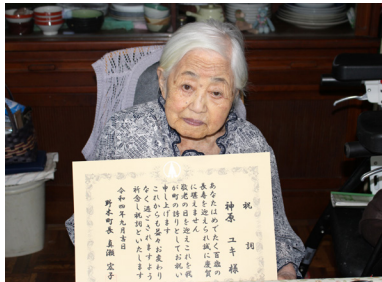 祝詞
神原 ユキ 様
あなたはめでたく百歳の
長寿を迎えられ誠に慶賀
に堪えません
敬老の日を迎えこれを我
が町の誇りとしてお祝い
申し上げます
これからも益々お変わり
なく過ごされますよう
祈念し祝詞といたします
令和四年九月吉日
野木町長 真瀬 宏子